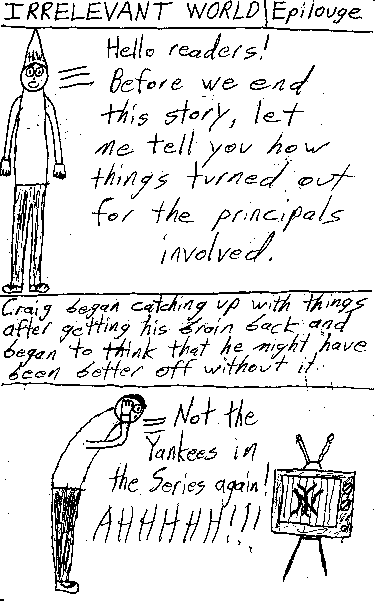 IRRELEVANT WORLD | Epilouge
Hello readers!
Before we end
this story, let
me tell you how
things turned out
for the principals
involved.
Craig began catching up with things
after getting his brain back and
began to think that he might have
been better off without it.
Not the
Yankees in
the Series again!
AHHHHH!!!